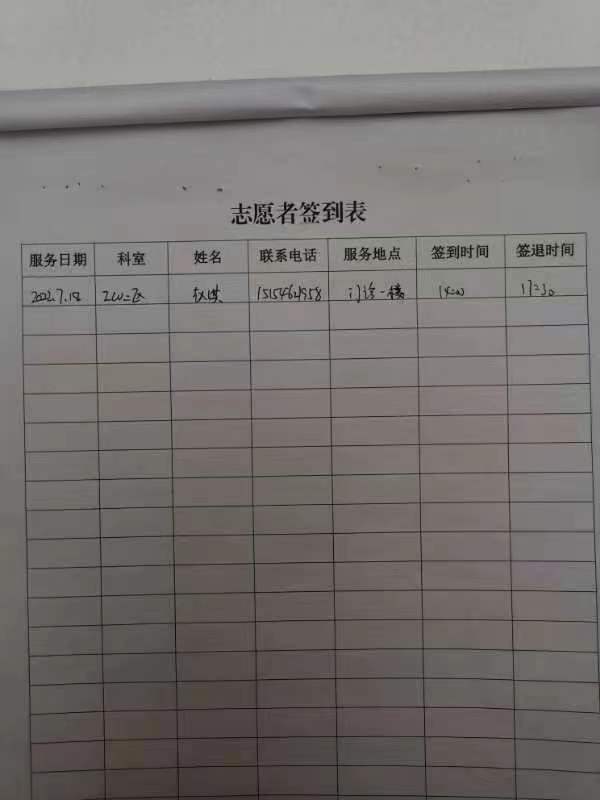 志愿者签到表
服务日期 科室 姓名 联系电话 服务地点 签到时间 签退时间
门诊一楼 14:00 17:30